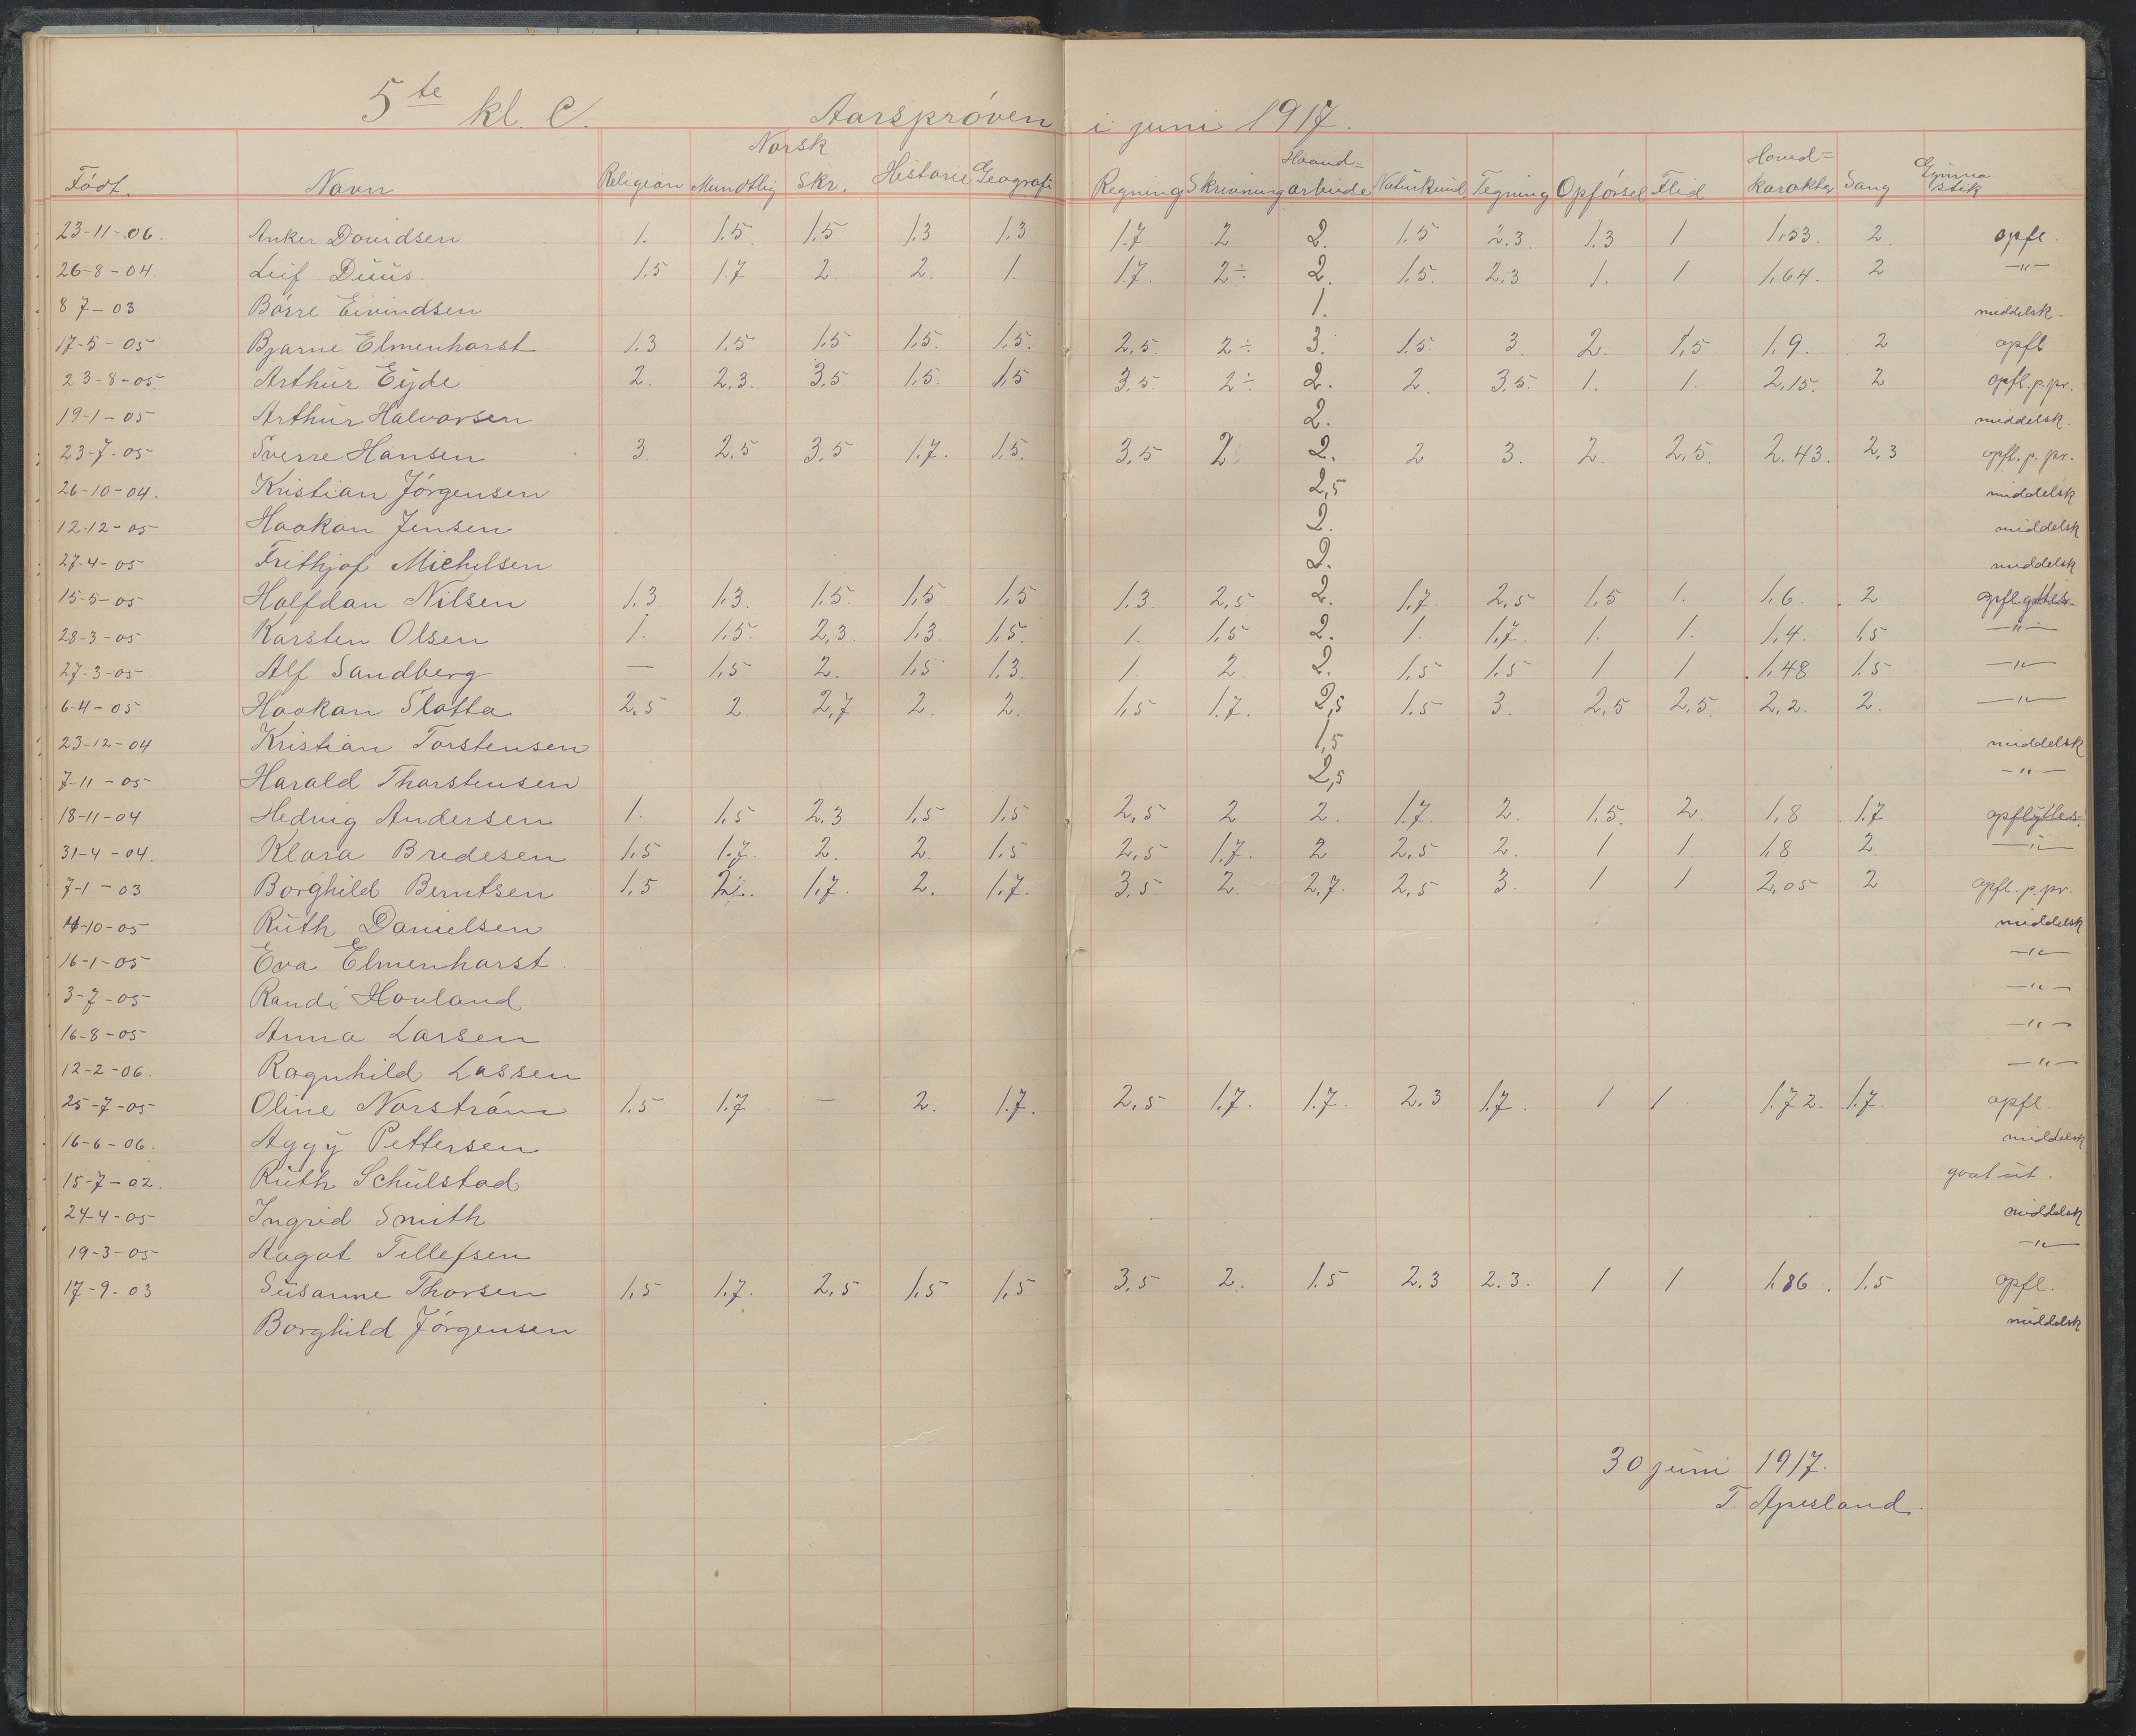 5te kl. C. Aarsprøven i juni 1917.
Norsk Haand= Hoved= Gymna
Født. Navn Religion Mundtlig Skr. Historie Geografi Regning Skrivning arbeide Naturkund. Tegning Opførsel Flid karakter Sang stik
23-11-06. Anker Davidsen 1. 1.5 1.5 1.3 1.3 1.7 2 2. 1.5 2.3. 1.3 1 1,53. 2. opfl.
26-8-04. Leif Duus. 1.5 1.7 2. 2. 1. 1.7. 2÷. 2. 1.5. 2,3 1. 1 1,64. 2 -"-
8 7-03 Børre Eivindsen 1. middelsk.
17-5-05 Bjarne Elmenhorst 1.3 1.5 1.5 1.5. 1.5. 2,5. 2÷. 3. 1.5. 3. 2. 1,5 1,9. 2 opfl
23-8-05. Arthur Eyde 2. 2,3. 3,5. 1.5. 1,5 3,5. 2÷. 2. 2. 3,5. 1. 1. 2,15. 2 opfl.p.pr.
19-1-05 Arthur Halvorsen 2. middelsk.
23-7-05 Sverre Hansen 3. 2,5 3,5 1.7. 1.5. 3,5 2 2. 2 3. 2. 2,5. 2.43. 2,3 opfl.p.pr.
26-10-04. Kristian Jørgensen 2,5 middelsk
12-12-05 Haakon Jensen 2. middelsk
27-4-05 Frithjof Michelsen 2. middelsk
15-5-05 Halfdan Nilsen 1,3 1.3. 1.5. 1,5 1,5 1.3. 2,5 2. 1.7. 2,5 1,5 1. 1,6. 2 opflyttes.
28-3-05 Karsten Olsen 1. 1,5. 2,3. 1.3. 1,5. 1. 1,5 2. 1. 1,7. 1. 1. 1,4. 1,5 -"-
27-3-05 Alf Sandberg — 1,5 2. 1,5 1,3. 1. 2. 2. 1,5 1,5 1 1 1,48 1,5 -"-
6-4-05 Haakon Slatta 2,5 2 2,7 2. 2. 1,5 1.7. 2,5 1.5 3. 2,5 2,5. 2,2. 2. -"-
23-12-04 Kristian Torstensen 1,5 middelsk
7-11-05 Harald Thorstensen 2,5 -"-
18-11-04 Hedvig Andersen 1. 1,5 2.3 1,5 1,5 2,5 2 2. 1.7. 2. 1,5. 2. 1,8 1.7 opflyttes.
31-4-04. Klara Bredesen 1,5 1.7. 2. 2. 1,5 2,5 1.7. 2 2,5 2. 1 1. 1,8 2 -"-
7-1-03 Borghild Berntsen 1,5 2÷. 1,7. 2. 1,7. 3,5 2. 2,7. 2,5 3. 1 1 2,05 2 opfl.p.pr.
4-10-05 Ruth Danielsen middelsk
16-1-05 Eva Elmenhorst. -"-
3-7-05 Randi Hovland -"-
16-8-05 Anna Larsen -"-
12-2-06. Ragnhild Lassen -"-
25-7-05 Oline Norstrøm 1.5 1.7 — 2. 1.7. 2,5 1.7. 1.7. 2,3 1.7. 1 1 1.72. 1.7. opfl.
16-6-06. Aggy Pettersen middelsk
15-7-02. Ruth Schulstad gaat ut.
24-4-05 Ingrid Smith middelsk
19-3-05 Aagot Tellefsen -"-
17-9-03 Susanne Thorsen 1,5 1.7. 2,5 1,5 1,5 3,5 2. 1.5 2.3 2.3. 1 1 1.86. 1.5 opfl.
Borghild Jørgensen middelsk
30 juni 1917.
T. Apesland.